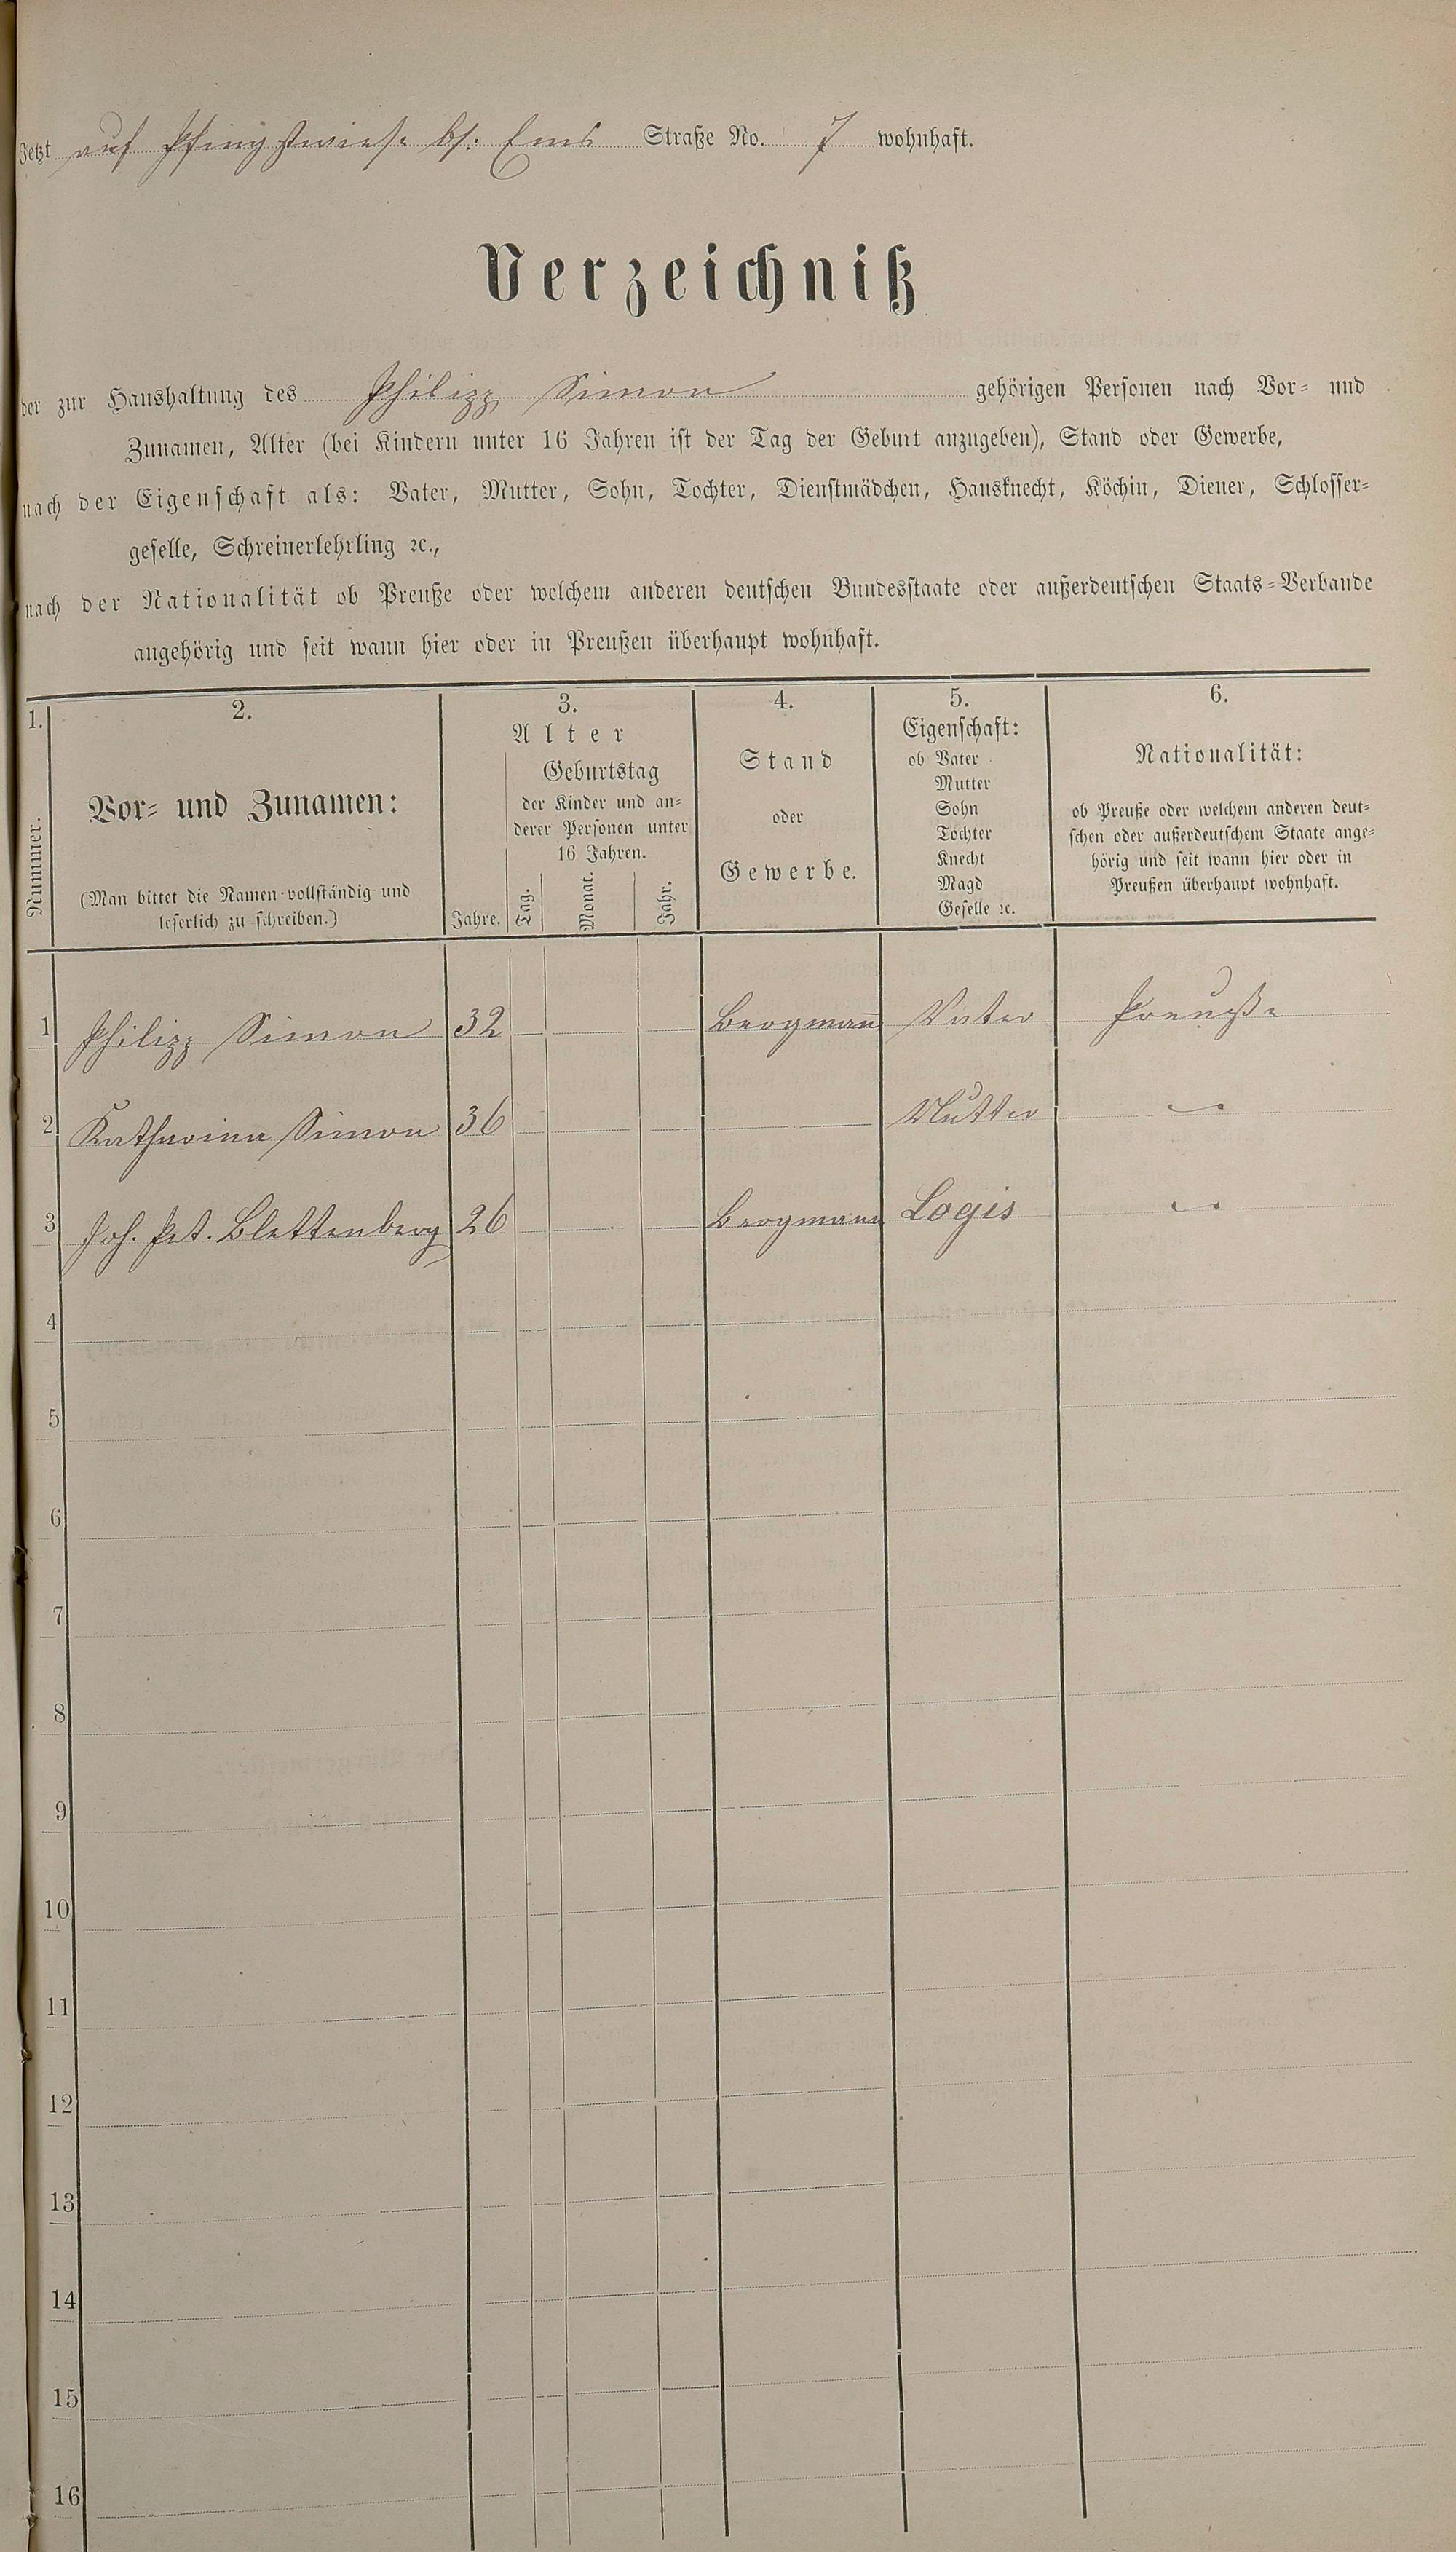 Jetzt auf Pfingstwiese bs. Ems Straße No. 7 wohnhaft.
Verzeichniß
der zur Haushaltung des Philipp Simon gehörigen Personen nach Vor- und
Zunamen, Alter (bei Kindern unter 16 Jahren ist der Tag der Geburt anzugeben), Stand oder Gewerbe,
nach der Eigenschaft als: Vater, Mutter, Sohn, Tochter, Dienstmädchen, Hausknecht, Köchin, Diener, Schlosser-
geselle, Schreinerlehrling ꝛc.,
nach der Nationalität ob Preuße oder welchem anderen deutschen Bundesstaate oder außerdeutschen Staats-Verbande
angehörig und seit wann hier oder in Preußen überhaupt wohnhaft.
1.
Nummer.
2.
Vor- und Zunamen:
(Man bittet die Namen vollständig und
leserlich zu schreiben.)
3.
Alter
Geburtstag
der Kinder und an-
derer Personen unter
16 Jahren.
Jahre. Tag. Monat. Jahr.
4.
Stand
oder
Gewerbe.
5.
Eigenschaft:
ob Vater
Mutter
Sohn
Tochter
Knecht
Magd
Geselle ꝛc.
6.
Nationalität:
ob Preuße oder welchem anderen deut-
schen oder außerdeutschem Staate ange-
hörig und seit wann hier oder in
Preußen überhaupt wohnhaft.
1 Philipp Simon 32 Bergmann Vater Preuße
2 Katharina Simon 36 Mutter
3 Joh. Pet. Blettenberg 26 Bergmann Logis
4
5
6
7
8
9
10
11
12
13
14
15
16